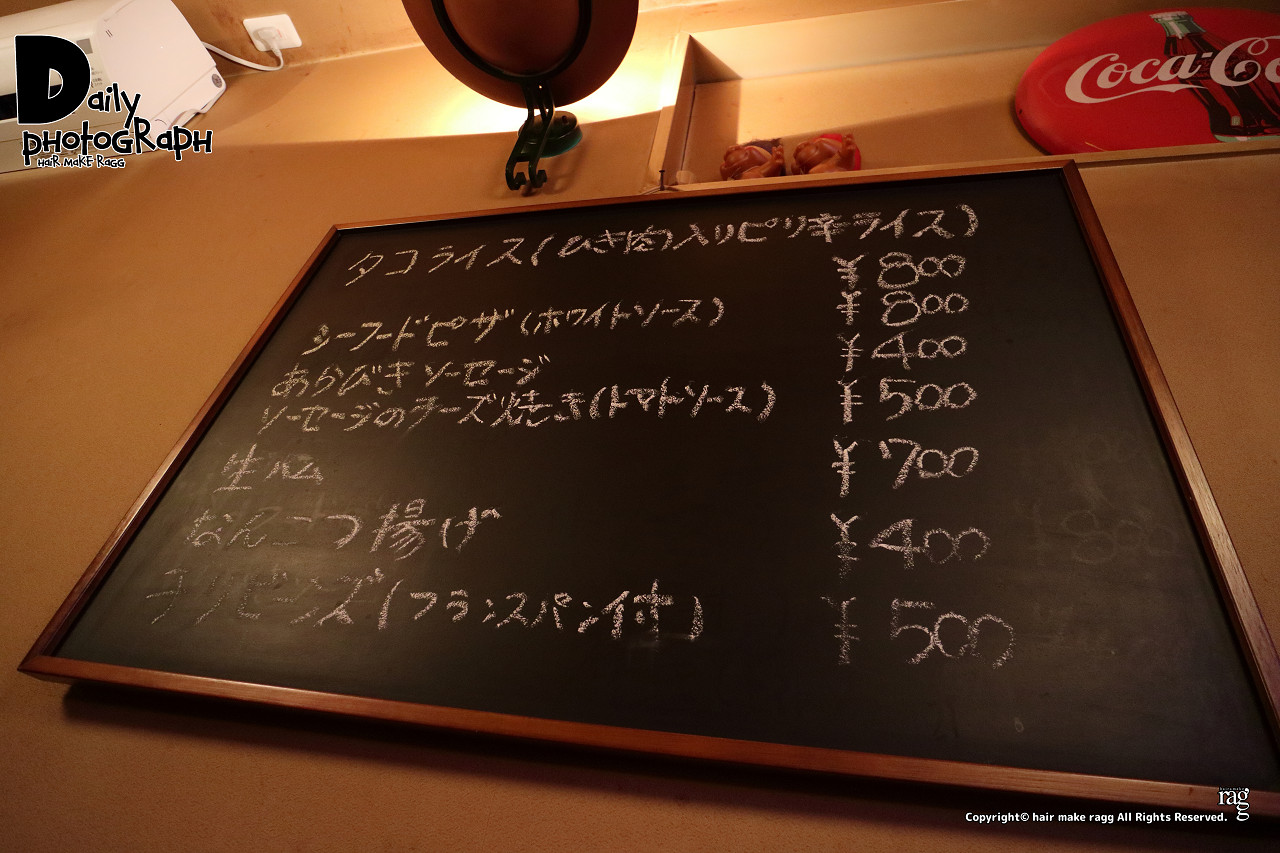 Daily
photograph
HAIR MAKE RAGG
Coca-Co
タコライス(ひき肉入りピリ辛ライス)
¥800
シーフードピザ(ホワイトソース) ¥800
あらびきソーセージ ¥400
ソーセージのチーズ焼き(トマトソース) ¥500
生ハム ¥700
なんこつ揚げ ¥400
チリビーンズ(フランスパン付) ¥500
rag
Copyright© hair make ragg All Rights Reserved.